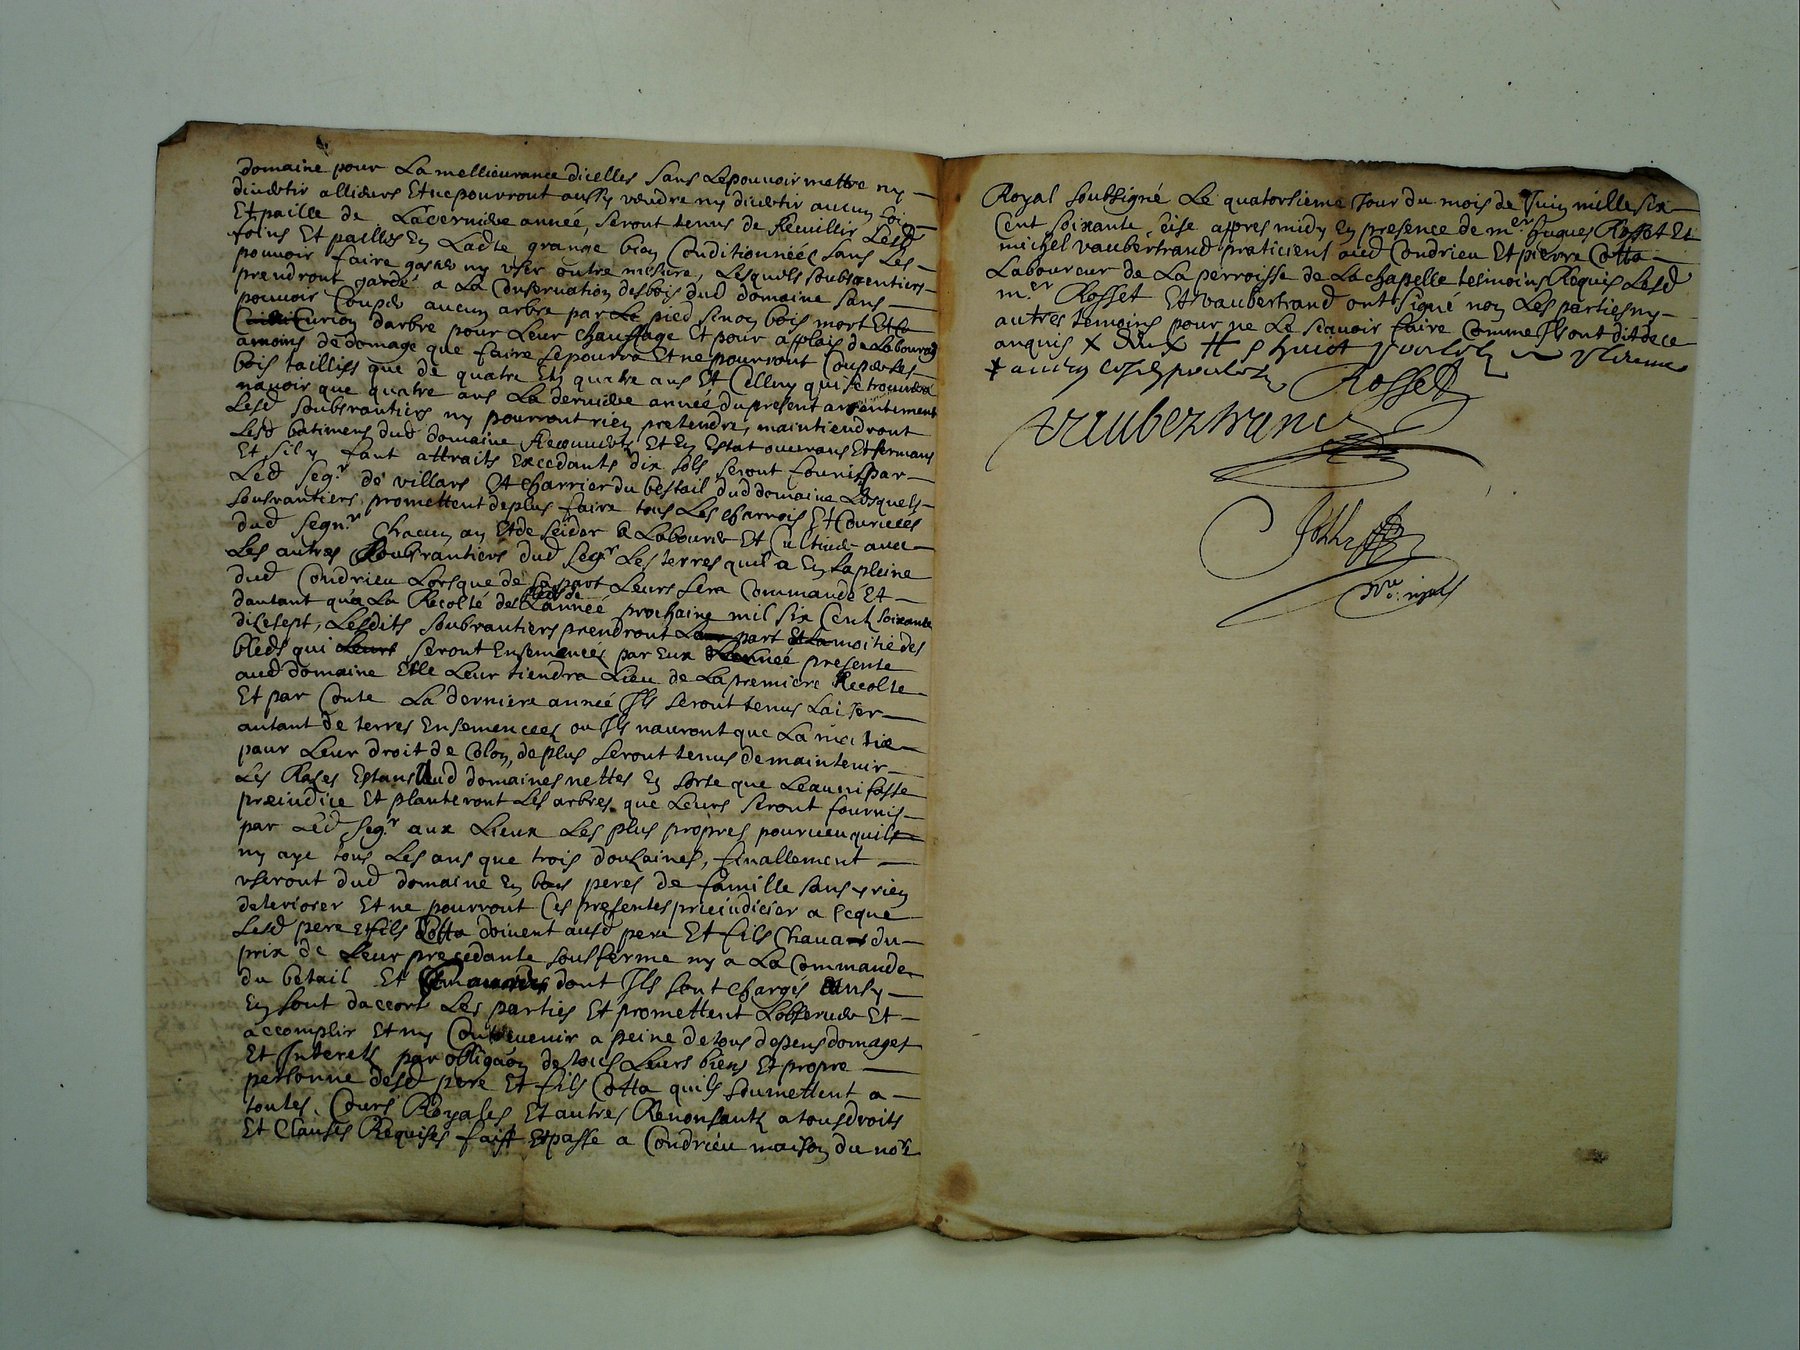 domaine pour La mellieurance dicelles sans Le pouvoir mettre ny
divertir allieurs Et ne pourront aussy vendre ny divertir aucun foin
Et paille de Laderniere année, seront tenus de Recuillir Lesd
foins Et pailles En Ladte grange bien Conditionnées sans Les
pouvoir faire gaster ny user outre mesure, Lesquels soubsrentiers
prendront garde a La Conservation des bois dud domaine sans
pouvoir Couper aucun arbre par Le pied sinon bois mort Et
darbre pour Leur chauffage Et pour applais de Labourage
amoins de domage que faire se pourra Et ne pourront Couper Les
bois taillifs que de quatre En quatre ans Et Celluy qui se trouvera
navoir que quatre ans La derniere année du present
Lesd soubsrantiers ny pourront rien pretendre, maintiendront
Lesd batimens dud domaine Recouverts Et En Estat ouvrans Et fermans
Et sil y faut attraits Excedants dix sols seront fournis par
Led segr de villars Et Charrier du bestail dud domaine Lesquels
sousrantiers promettent deplus faire tous Les charrois Et Courvees
dud segnr Chacun an Et de seider a Labourer Et Cultiver avec
Les autres soubsrantiers dud segr Les terres quil a En La pleine
dud Condrieu Lorsque de sa part Leurs sera Commandé Et
dautant qua La Recolte de Lannéé prochaine mil six Cent soixante
dicesept, Lesdits soubrantiers prendront part moitié des
bleds qui seront Ensemencés par Eux presente
aud domaine Elle Leur tiendra Lieu de La premiere Recolte
Et par Conte La derniere année Ils seront tenus Laisser
autant de terres Ensemencees ou Ils nauront que La moitie
paur Leur droit de Colon, deplus seront tenus de maintenir
Les Rases Estans aud domaines nettes En sorte que Leau ni fasse
preiudice Et planteront Les arbres que Leurs seront fournis
par Led segr aux Lieux Les plus propres pourveu quil
ny aye tous Les ans que trois douzaines, finallement
useront dud domaine En bons peres de famille sans y rien
deteriorer Et ne pourront Ces presentes preiudicier a Ceque
Lesd pere et fils Cotta doivent ausd pere Et fils Chava du
prix de Leur precedante sousferme ny a La Commande
du betail Et dont Ils sont chargés Ainsy
En sont daccort Les parties Et promettent Lobserver Et
accomplir Et ny Contrevenir a peine de tous depens domages
Et Interets par obligaon de tous Leurs biens Et propre
personne desd pere Et fils Cotta quils soumettent a
toutes Cours Royales Et autres Renonsants a tous droits
Et Clauses Requises faitt Et passe a Condrieu maison du nore
Royal soubsigné Le quatorsieme Jour du mois de Juin mille six
Cent soixante seise appres midy En presence de mer hugues Rosset Et
michel vaubertrand praticiens aud Condrieu Et pierre Cotta
Laboureur de La perroisse de La chapelle tesmoins Requis Lesd
mer Rosset Et vaubertrand ont signé non Les parties ny
autres temoins pour ne Le scavoir faire Comme Ils ont dit de ce
anquis
Rosset
vaubertrand